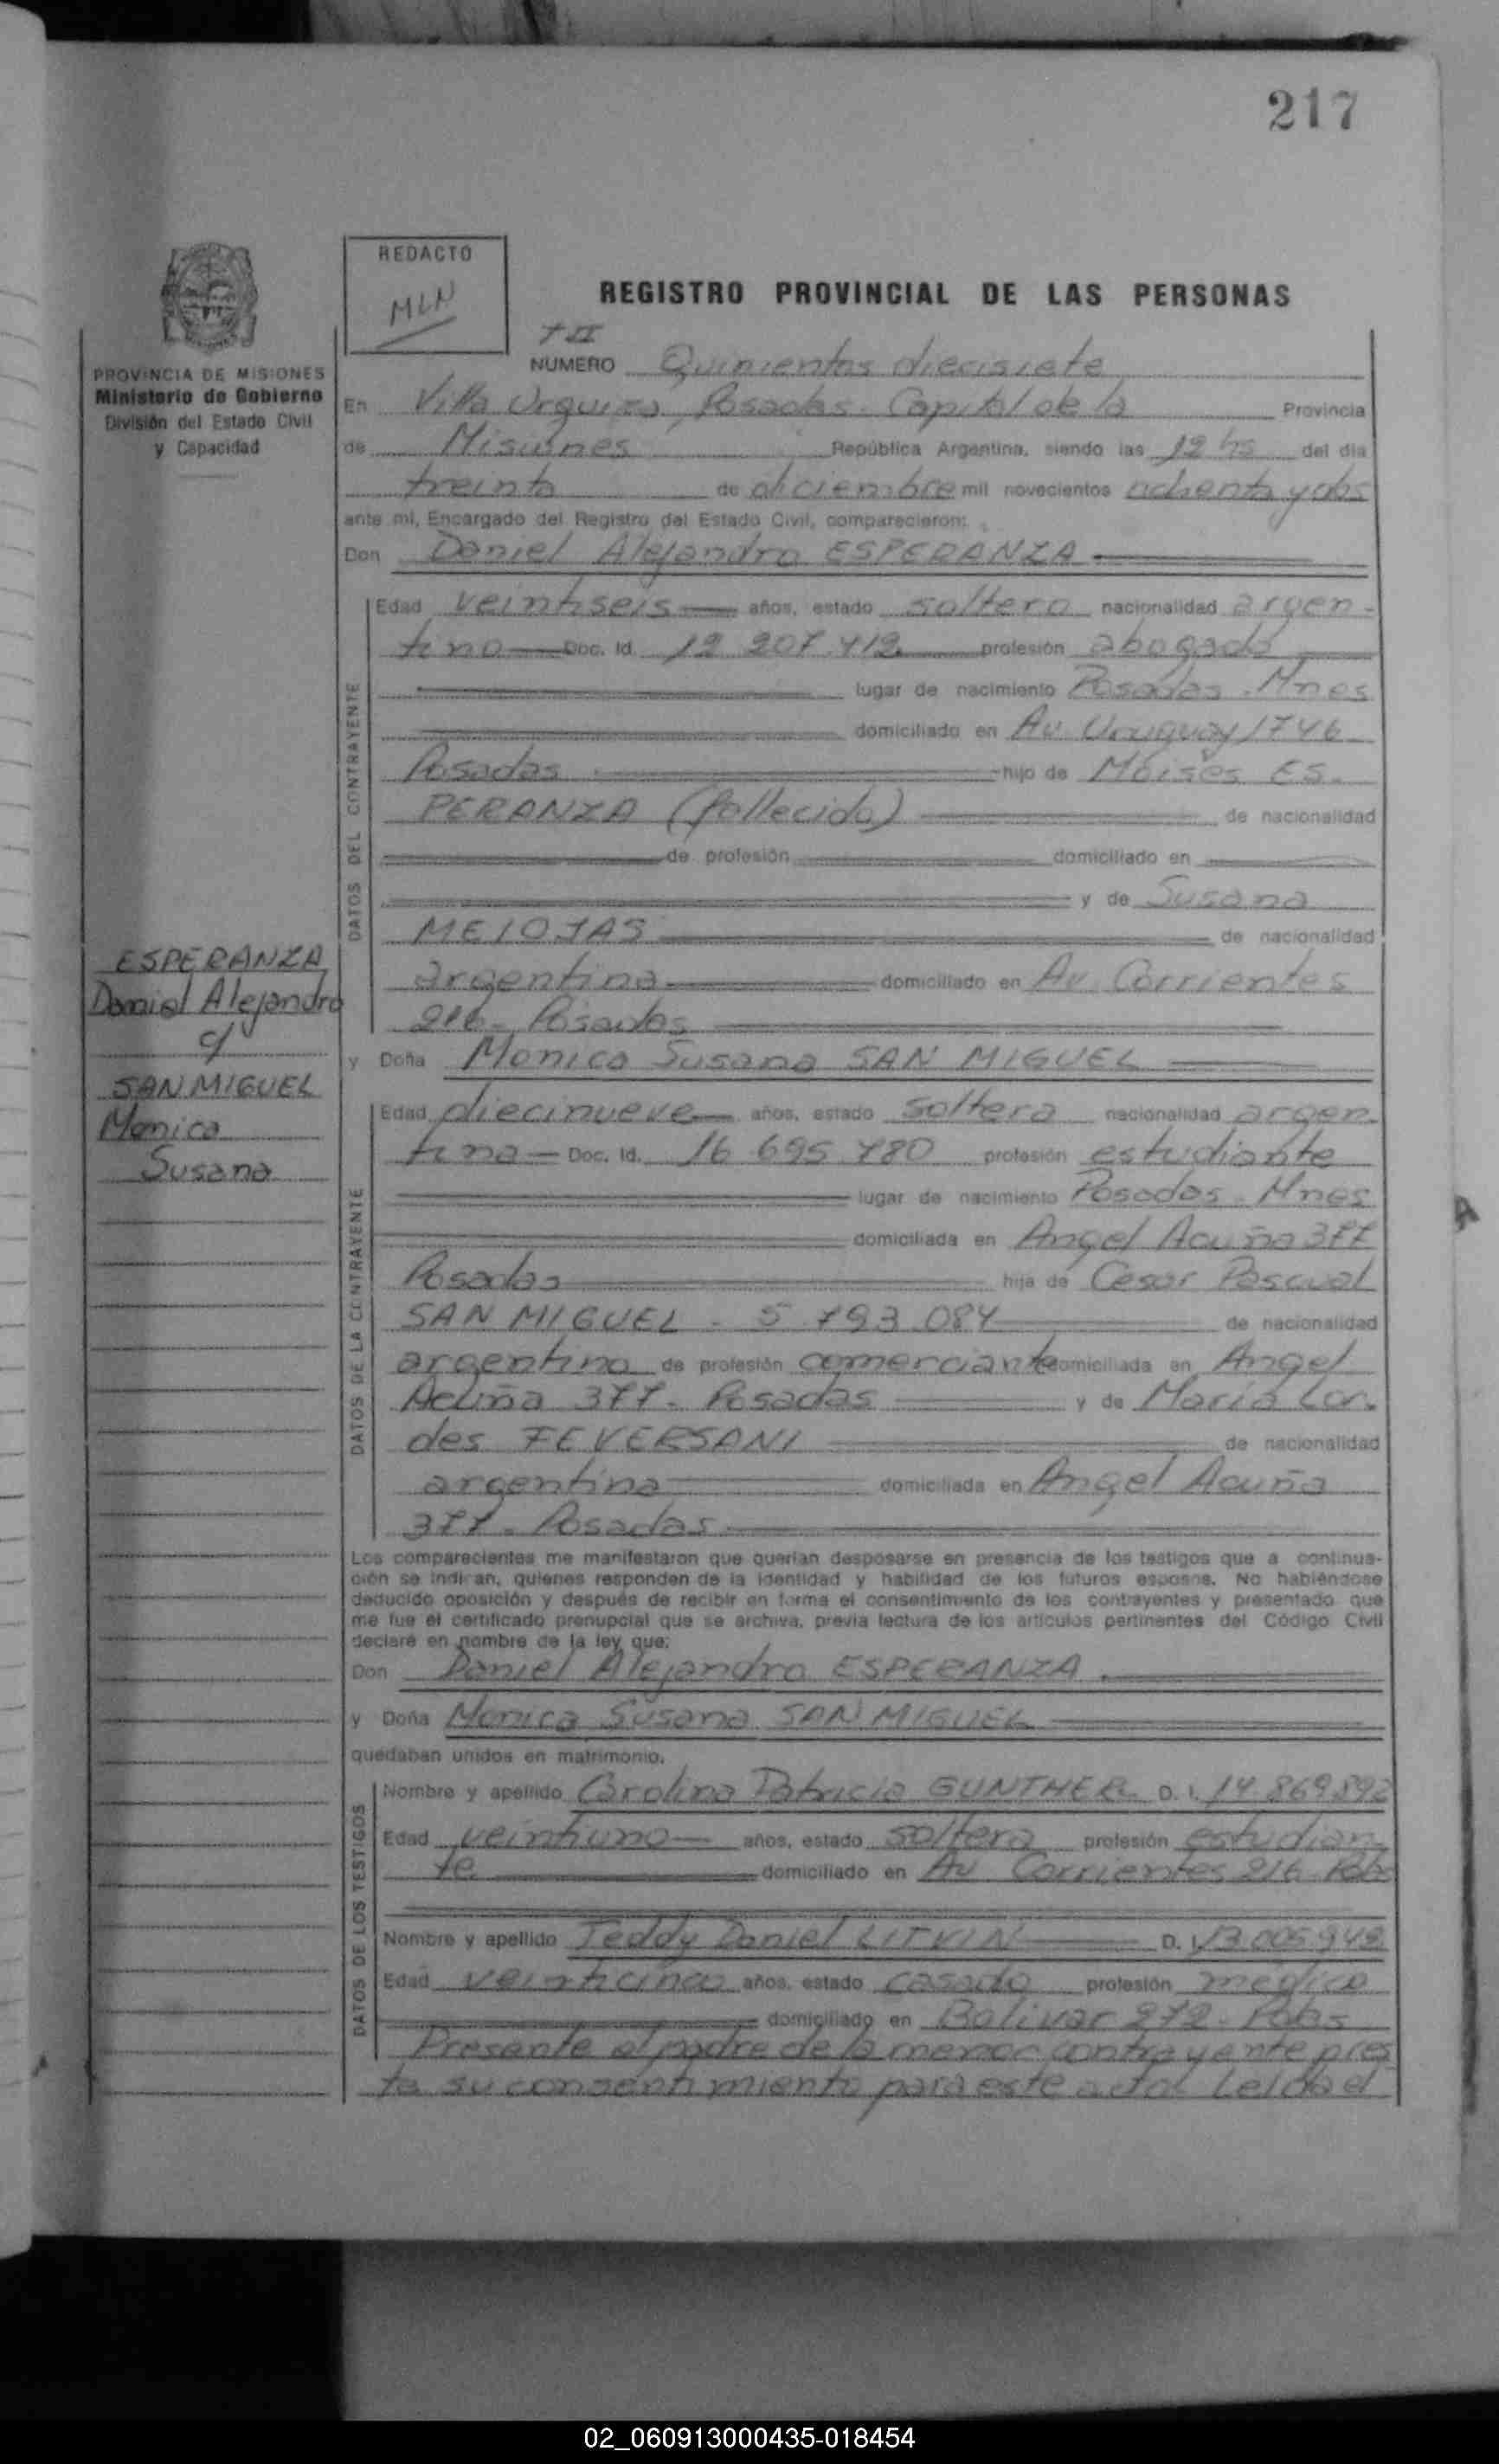 217
REDACTO
MLN
REGISTRO PROVINCIAL DE LAS PERSONAS
T II
NUMERO Quinientos diecisiete
PROVINCIA DE MISIONES
Ministerio de Gobierno
División del Estado Civil
y Capacidad
En Villa Urquiza, Posadas. Capital de la Provincia
de Misiones República Argentina, siendo las 12 hs del día
treinta de diciembre mil novecientos ochenta y dos
ante mí, Encargado del Registro del Estado Civil, comparecieron:
Don Daniel Alejandro ESPERANZA
DATOS DEL CONTRAYENTE
Edad veintiseis años, estado soltero nacionalidad argen-
tino Doc. Id. 12 207.412 profesión abogado
lugar de nacimiento Posadas. Mnes
domiciliado en Av. Uruguay 1746
Posadas hijo de Moises ES-
PERANZA (fallecido) de nacionalidad
de profesión domiciliado en
y de Susana
MELOJAS de nacionalidad
argentina domiciliado en Av. Corrientes
216- Posadas
ESPERANZA
Daniel Alejandro
c/
SAN MIGUEL
Monica
Susana
y Doña Monica Susana SAN MIGUEL
DATOS DE LA CONTRAYENTE
Edad diecinueve años, estado soltera nacionalidad argen-
tina - Doc. Id. 16 695 780 profesión estudiante
lugar de nacimiento Posadas. Mnes
domiciliada en Angel Acuña 377
Posadas hija de Cesar Pascual
SAN MIGUEL - 5 793 084 de nacionalidad
argentino de profesión comerciante domiciliada en Angel
Acuña 377- Posadas y de María Lor-
des FEVERSANI de nacionalidad
argentina domiciliada en Angel Acuña
377- Posadas
Los comparecientes me manifestaron que querían desposarse en presencia de los testigos que a continua-
ción se indican, quienes responden de la identidad y habilidad de los futuros esposos. No habiéndose
deducido oposición y después de recibir en forma el consentimiento de los contrayentes y presentado que
me fue el certificado prenupcial que se archiva, previa lectura de los artículos pertinentes del Código Civil
declaré en nombre de la ley que:
Don Daniel Alejandro ESPERANZA
y Doña Monica Susana SAN MIGUEL
quedaban unidos en matrimonio.
DATOS DE LOS TESTIGOS
Nombre y apellido Carolina Patricia GUNTHER D. I. 14.869.892
Edad veintiuno años, estado soltera profesión estudian-
te domiciliado en Av Corrientes 216 Pdas
Nombre y apellido Teddy Daniel LITVIN D. I. 13.005.942
Edad veinticinco años, estado casado profesión médico
domiciliado en Bolivar 272- Pdas
Presente el padre de la menor contrayente pres
ta su consentimiento para este acto. Leída el
02_060913000435-018454